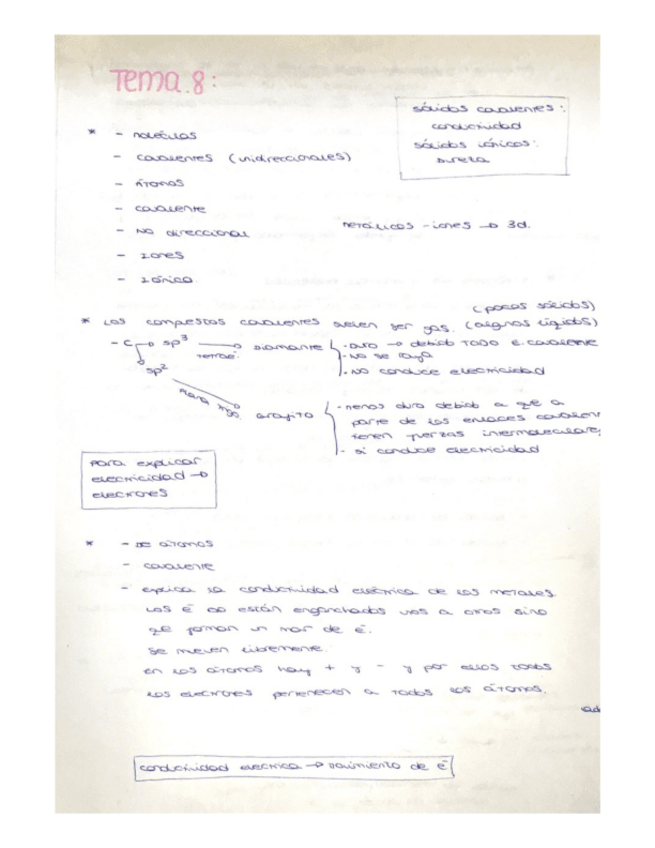 Tema 8:
sólidos covalentes:
conductividad
sólidos iónicos:
dureza
* - moléculas
- covalentes (unidireccionales)
- Átomos
- covalente
- No direccional
metálicos - iones → 3d.
- Iones
- Iónico.
(pocos sólidos)
* Los compestos covalentes suelen ser gas. (algunos líqidos)
- C → sp³ → Diamante - duro → debido TODO E. covalente
tetraé. - No se raya
sp² - No conduce electricidad
Grafito - menos duro debido a qe a
parte de los enlaces covalent
tienen fuerzas intermoleculares
- si conduce electricidad
Para explicar
electricidad →
electrones
* - DE átomos
- covalente
- explica la conductividad eléctrica de los metales.
Los ē no están enganchados unos a otros sino
qe forman un mar de ē.
Se mueven libremente.
en los átomos hay + y - y por ellos todos
los electrones pertenecen a todos los átomos.
conductividad electrica → movimiento de ē